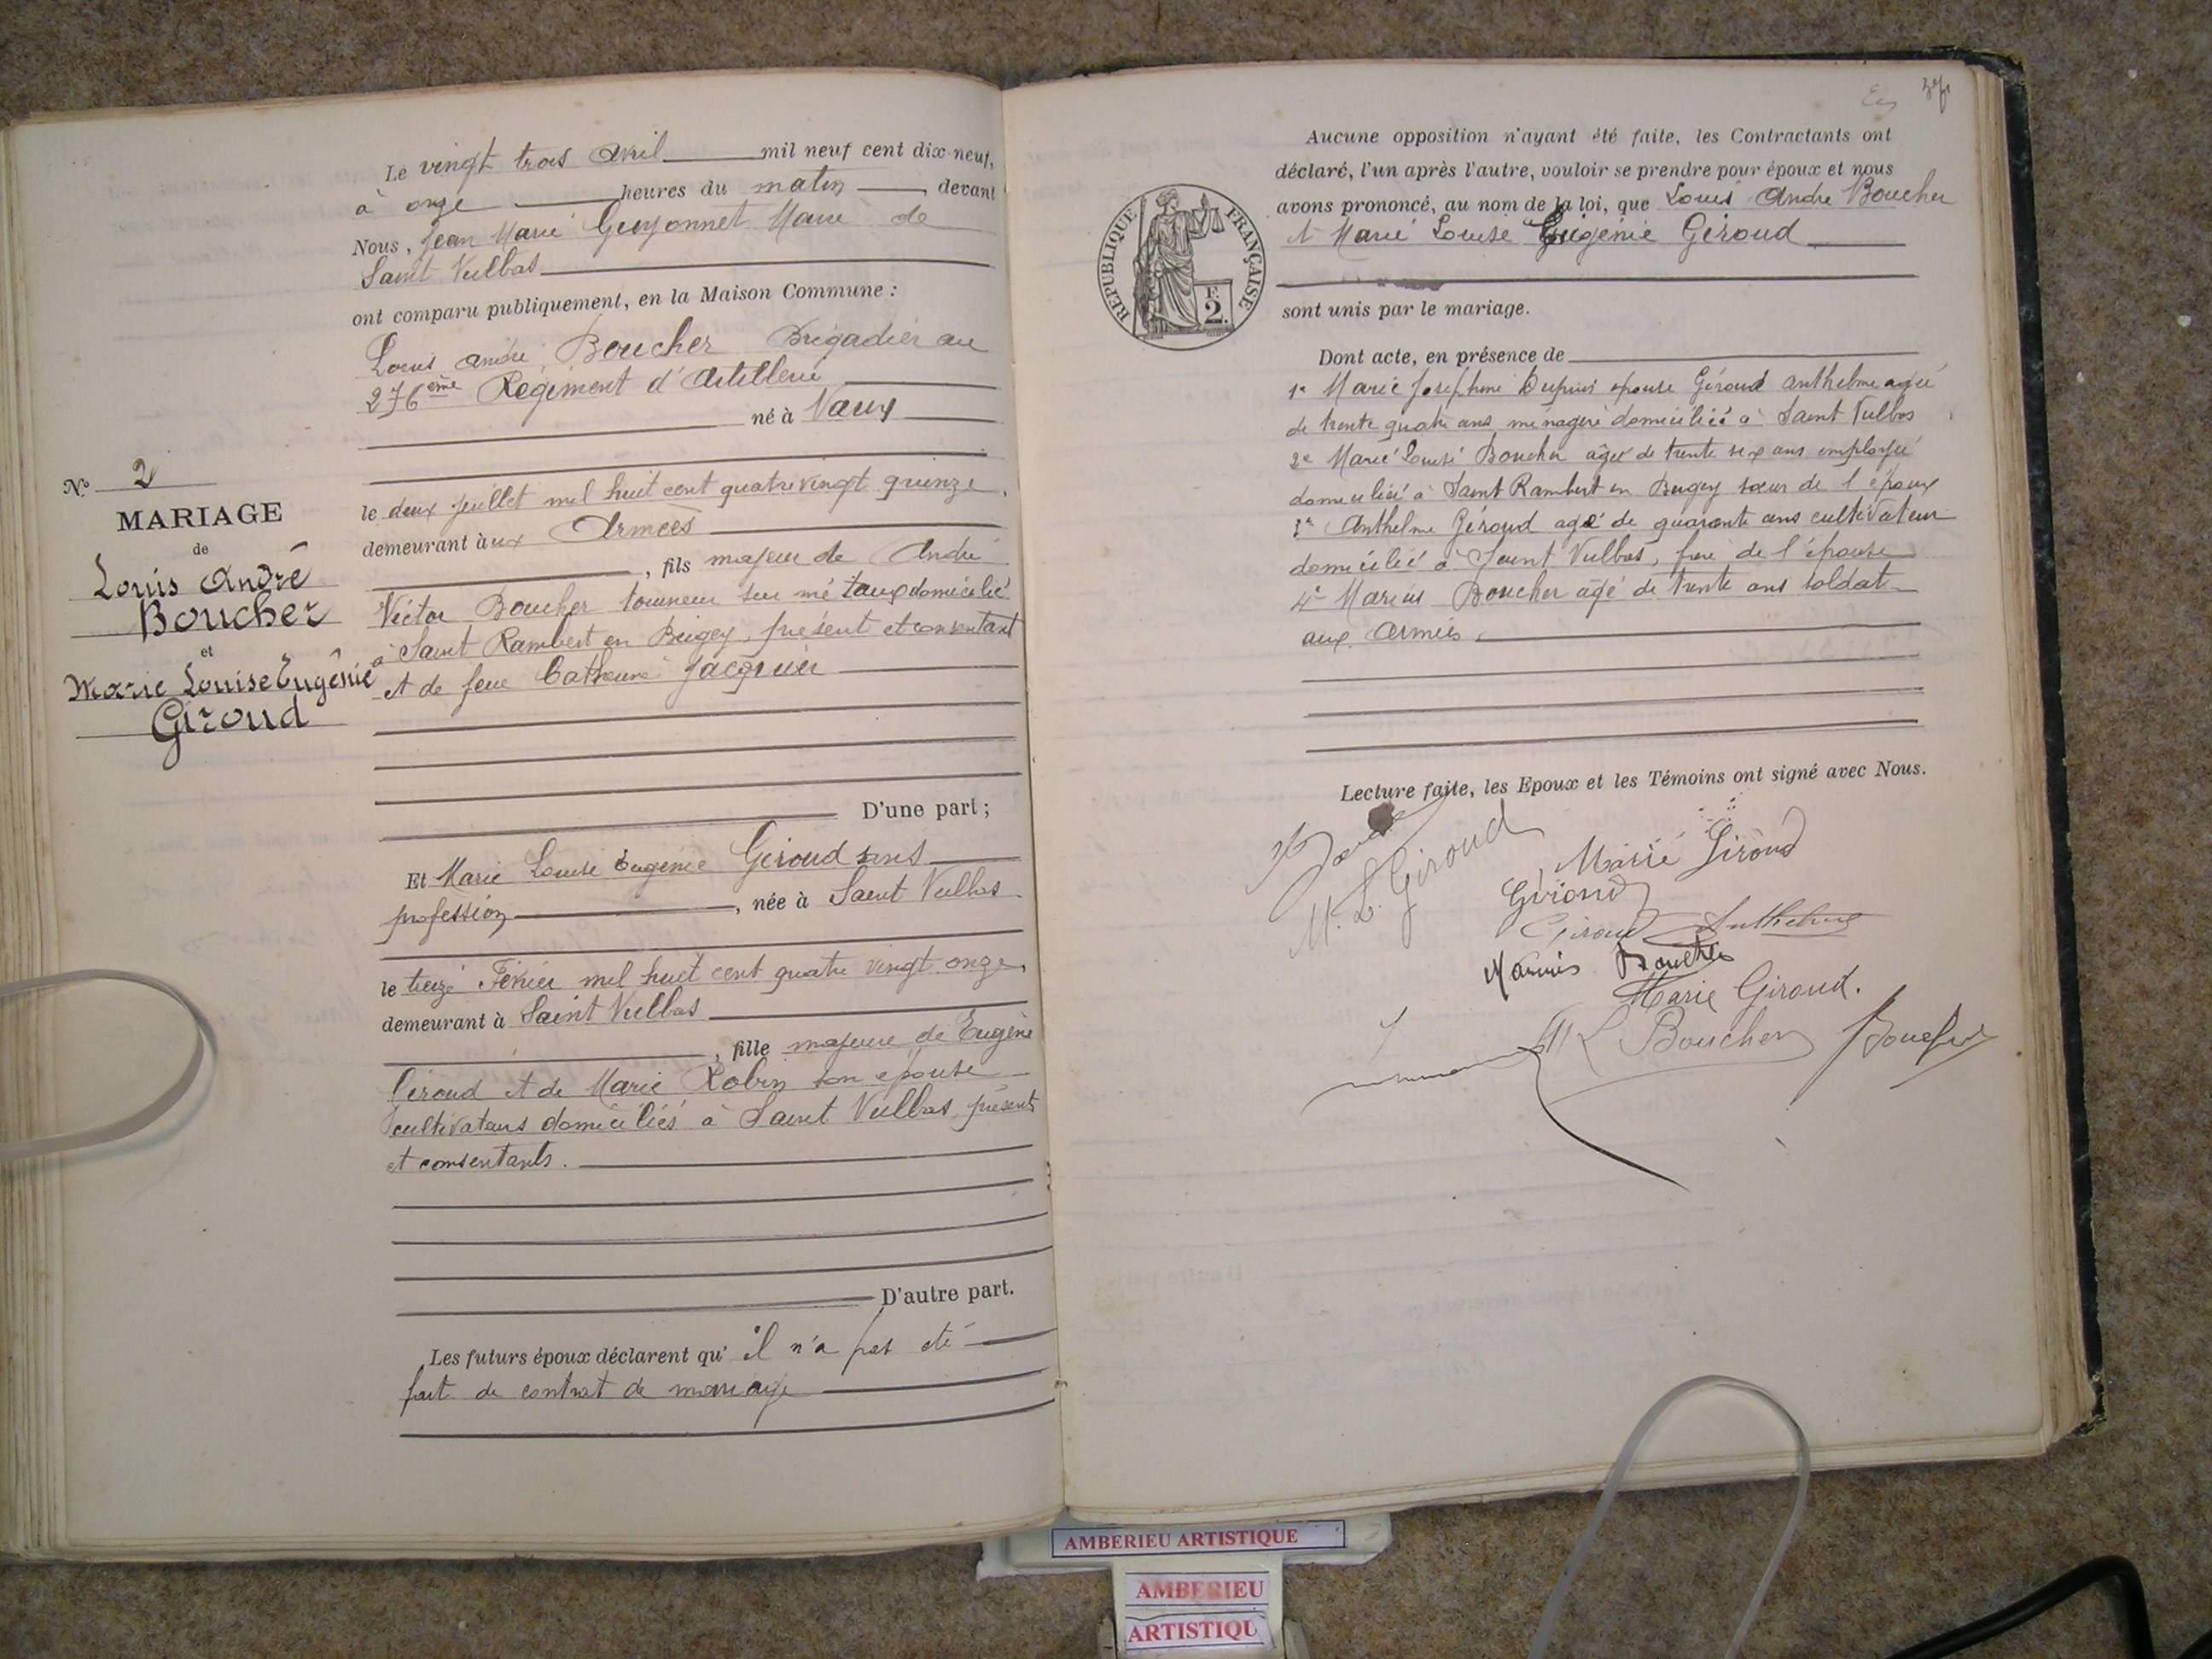 Le vingt trois Avril mil neuf cent dix-neuf,
à onze heures du matin, devant
Nous, Jean Marie Guyonnet Maire de
Saint Vulbas
ont comparu publiquement, en la Maison Commune :
Louis André Boucher Brigadier au
276ème Régiment d'Artillerie
né à Vaux
le deux juillet mil huit cent quatre vingt quinze,
demeurant aux Armées
, fils majeur de André
Victor Boucher tourneur sur métaux domicilié
à Saint Rambert en Bugey, présent et consentant
et de feue Catherine Jacquier
D'une part ;
Et Marie Louise Eugénie Giroud sans
profession, née à Saint Vulbas
le treize Février mil huit cent quatre vingt onze,
demeurant à Saint Vulbas
, fille majeure de Eugène
Giroud et de Marie Robin son épouse
cultivateurs domiciliés à Saint Vulbas, présents
et consentants.
D'autre part.
Les futurs époux déclarent qu'il n'a pas été
fait de contrat de mariage
No 2
MARIAGE
de
Louis André
Boucher
et
Marie Louise Eugénie
Giroud
Aucune opposition n'ayant été faite, les Contractants ont
déclaré, l'un après l'autre, vouloir se prendre pour époux et nous
avons prononcé, au nom de la loi, que Louis André Boucher
et Marie Louise Eugénie Giroud
sont unis par le mariage.
REPUBLIQUE FRANÇAISE
F.
2.
Dont acte, en présence de
1e Marie Joséphine Dupuis épouse Giroud Anthelme agée
de trente quatre ans ménagère domiciliée à Saint Vulbas
2e Marie Louise Boucher âgée de trente six ans employée
domiciliée à Saint Rambert en Bugey sœur de l'époux
3e Anthelme Giroud agé de quarante ans cultivateur
domicilié à Saint Vulbas, frère de l'épouse
4e Marius Boucher âgé de trente ans soldat
aux Armées.
Lecture faite, les Epoux et les Témoins ont signé avec Nous.
M. L. Giroud
Marie Giroud
Giroud
Giroud Anthelme
Marius Boucher
Marie Giroud.
M L Boucher
Boucher
AMBERIEU ARTISTIQUE
AMBERIEU
ARTISTIQU